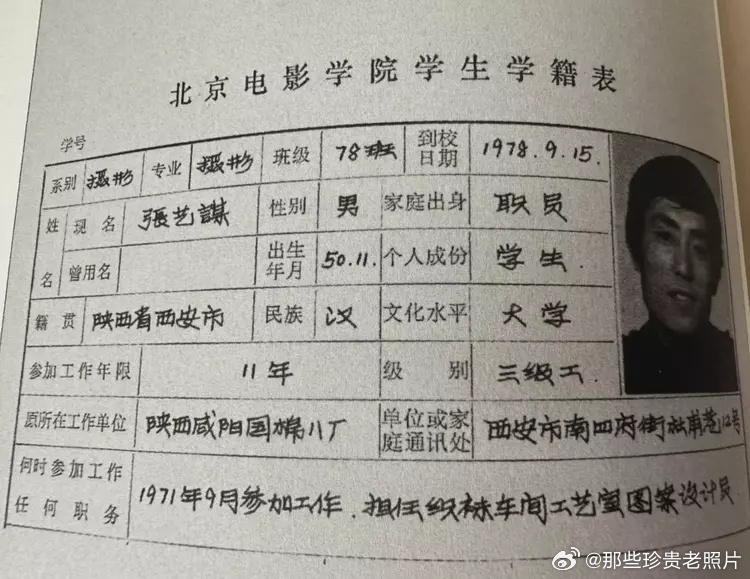 北京电影学院学生学籍表
学号
系别 摄影 专业 摄影 班级 78班 到校日期 1978.9.15.
姓名 现名 張艺謀 性别 男 家庭出身 职员
曾用名 出生年月 50.11. 个人成份 学生
籍贯 陕西省西安市 民族 汉 文化水平 大学
参加工作年限 11年 级别 三级工
原所在工作单位 陕西咸阳国棉八厂 单位或家庭通讯处 西安市南四府街社甫巷12号
何时参加工作任何职务 1971年9月参加工作.担任织袜车间工艺室图案设计员
@那些珍贵老照片